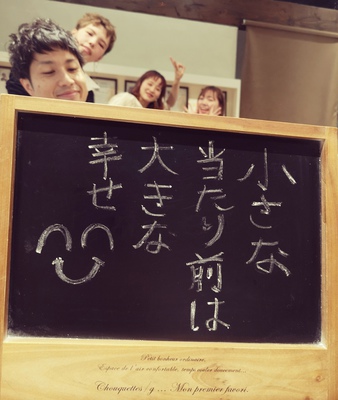 小さな
当たり前は
大きな
幸せ
Petit bonheur ordinaire,
Espace de l'air confortable, temps couler doucement...
Chouquettes /g ... Mon premier favori.